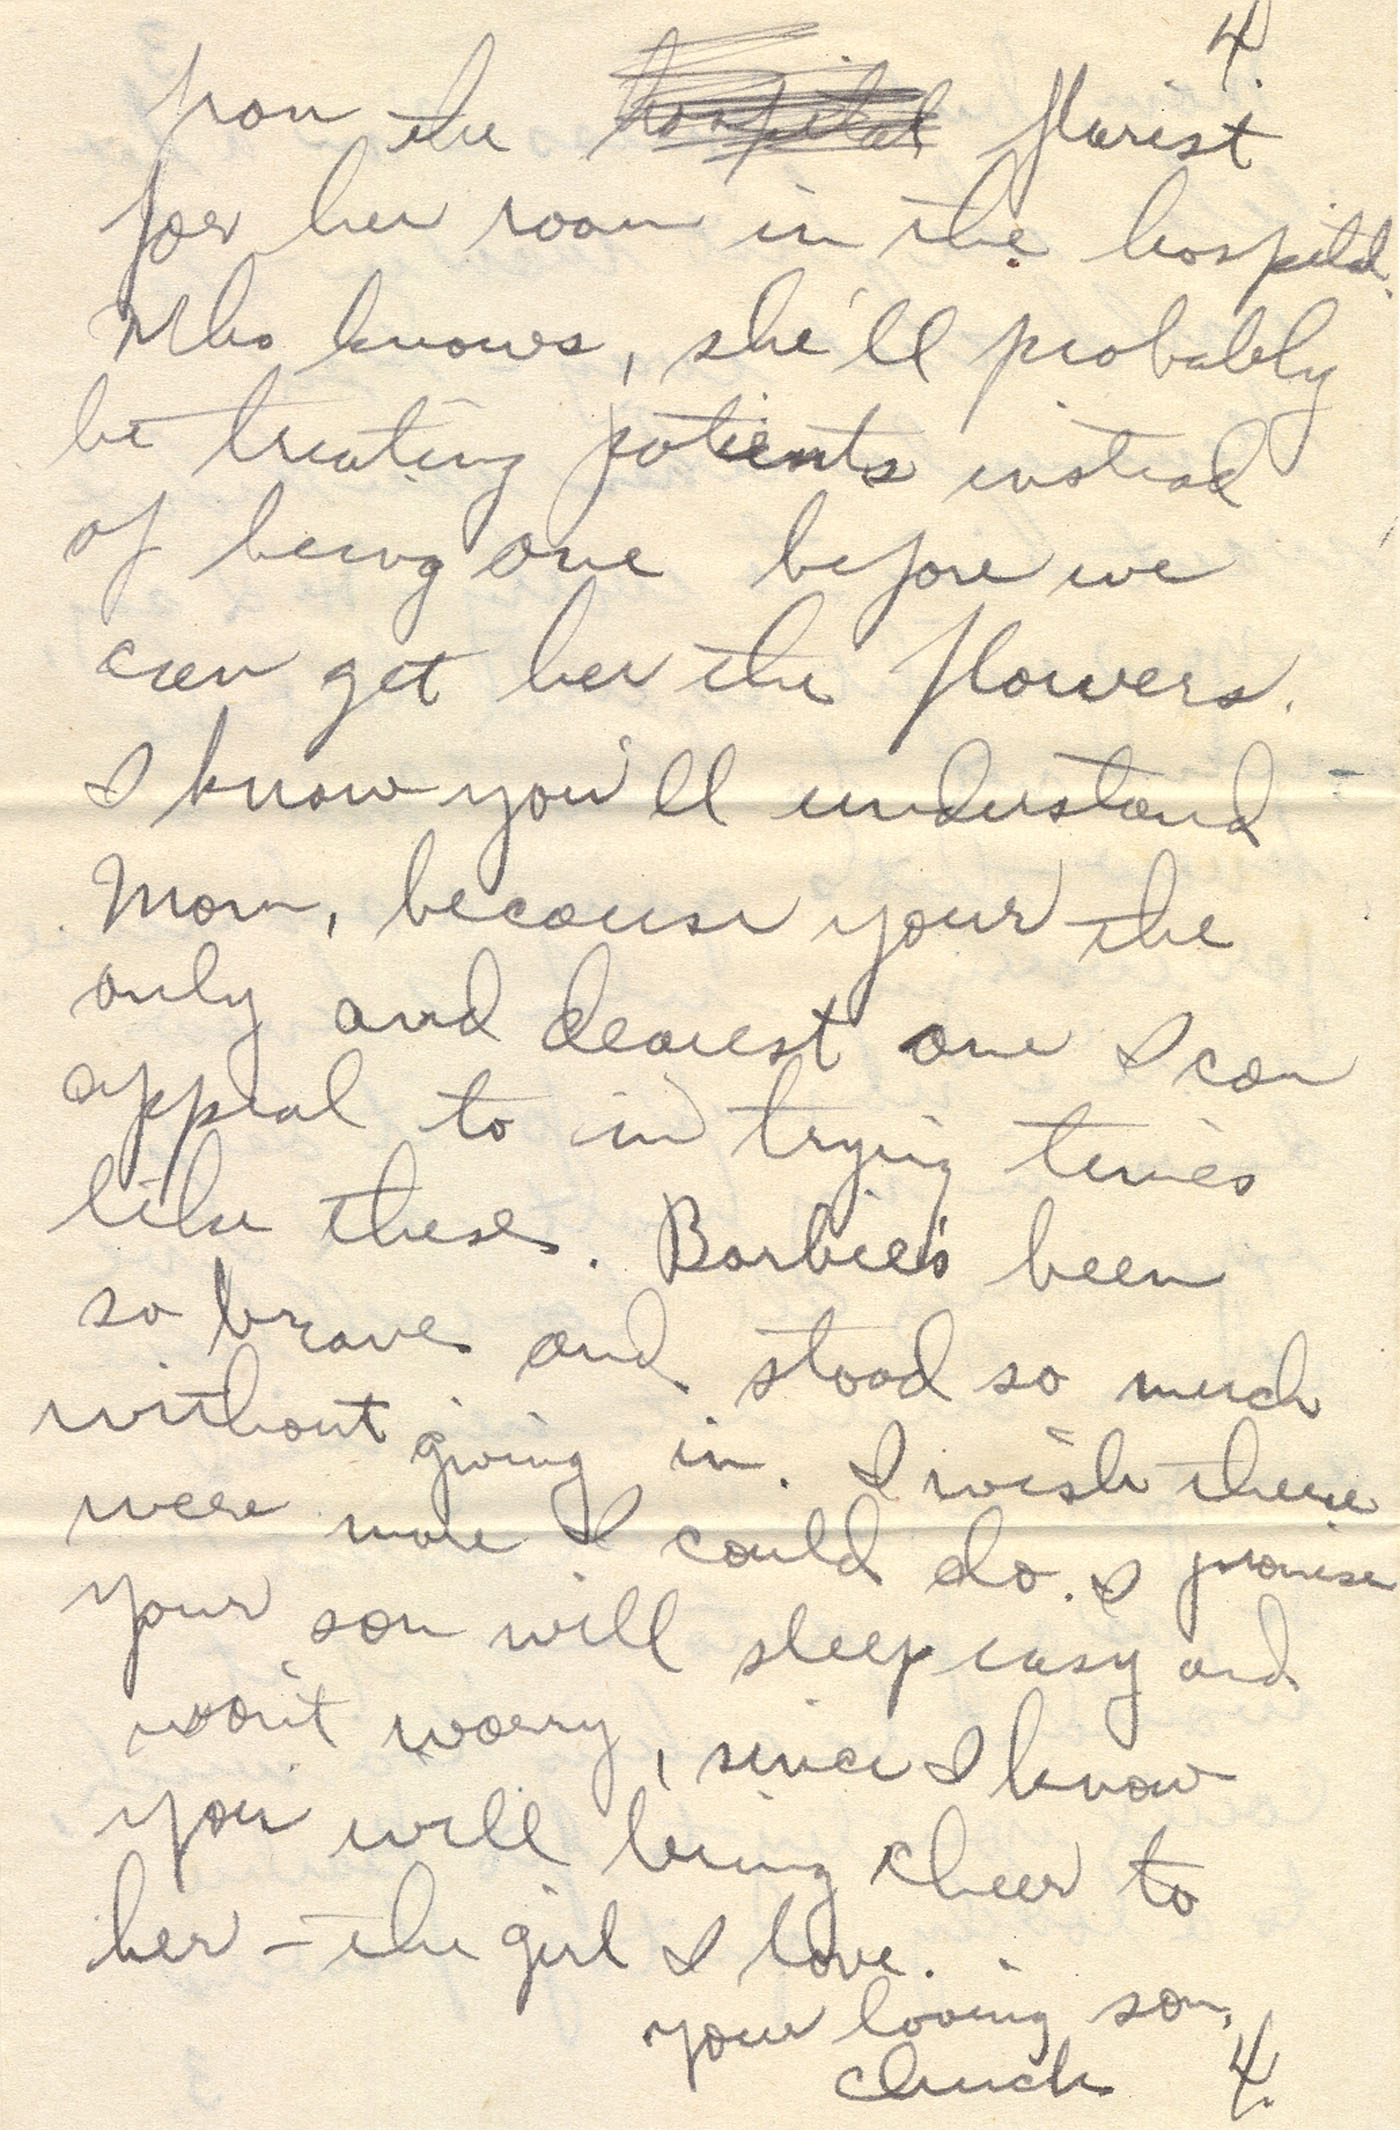 4.
from the hospital florist
for her room in the hospital.
Who knows, she'll probably
be treating patients instead
of being one before we
can get her the flowers.
I know you'll understand
Mom, because your the
only and dearest one I can
appeal to in trying times
like these. Barbie's been
so brave and stood so much
without giving in. I wish there
were more I could do. I promise
your son will sleep easy and
won't worry, since I know
you will bring cheer to
her - the girl I love.
your loving son,
Chuck 4.